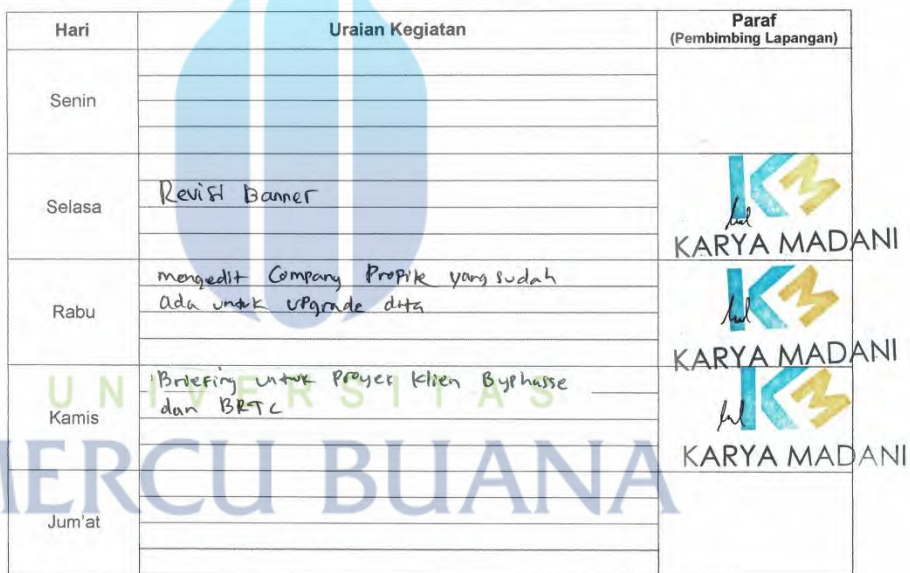 Hari Uraian Kegiatan Paraf
(Pembimbing Lapangan)
Senin
Selasa
Revisi Banner
KM
KARYA MADANI
Rabu
mengedit Company Profile yang sudah
ada untuk upgrade data
KM
KARYA MADANI
Kamis
Briefing untuk Proyek klien Byphasse
dan BRTC
KM
KARYA MADANI
UNIVERSITAS
MERCU BUANA
Jum'at